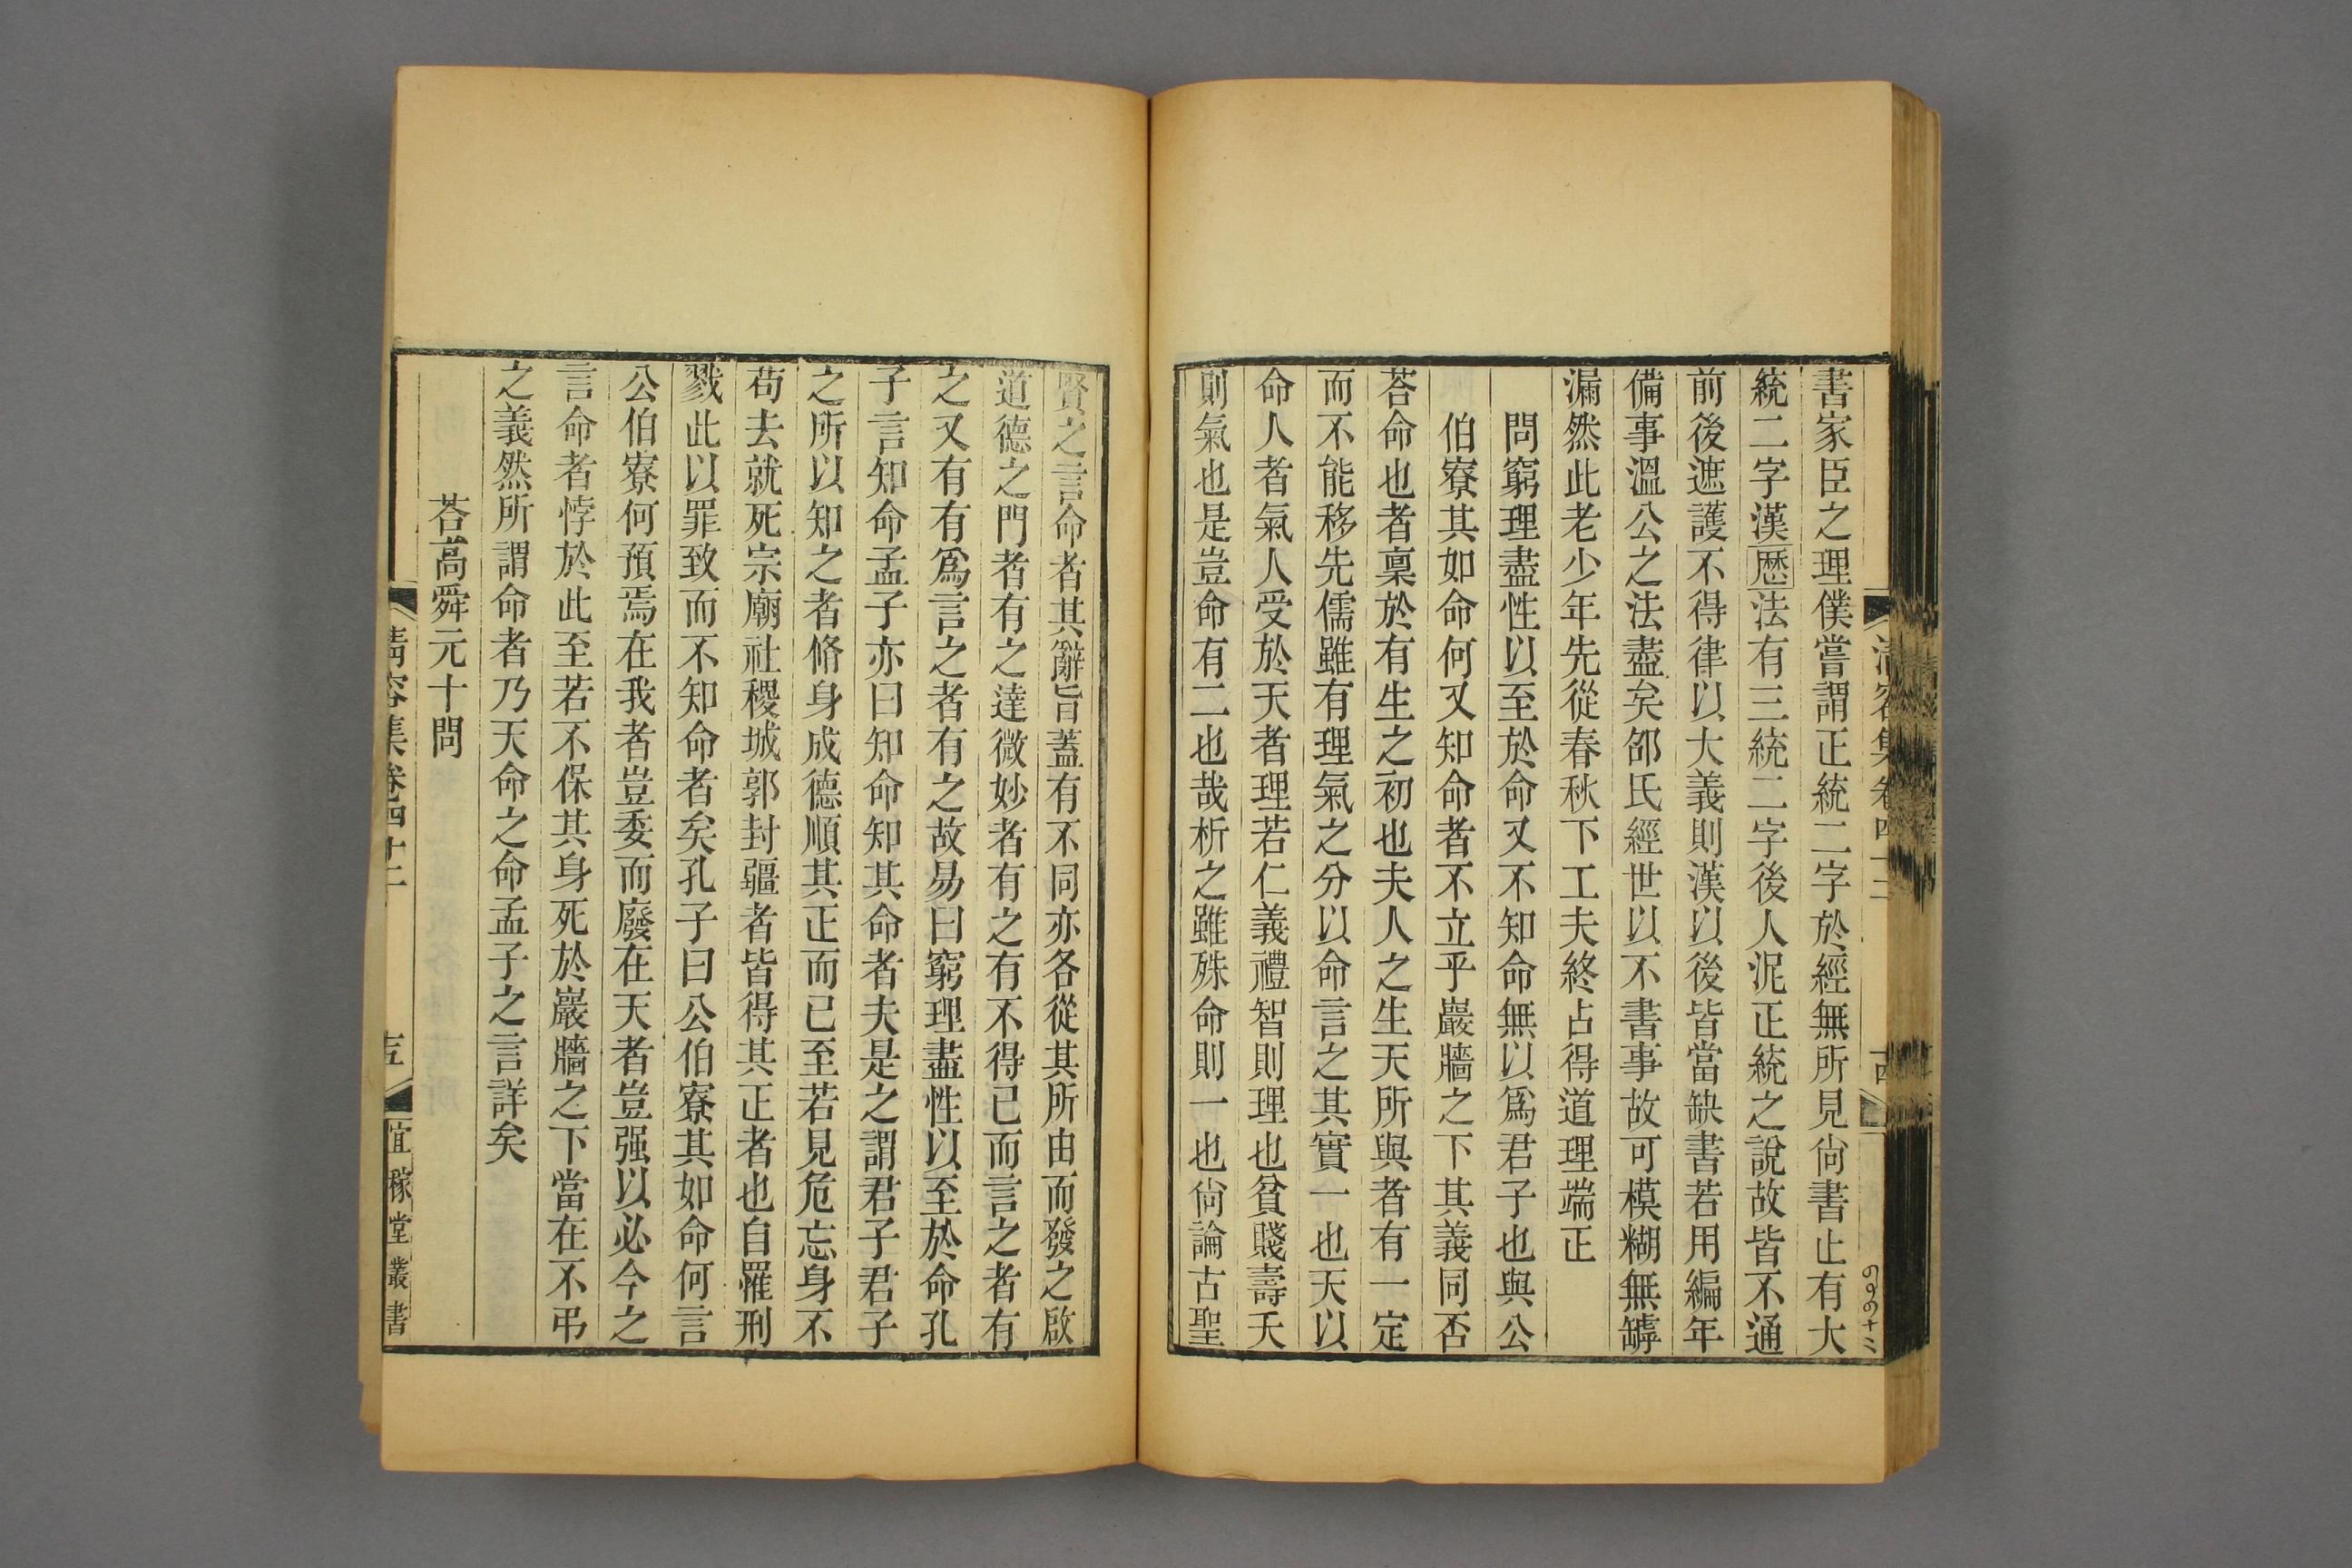 書家臣之理僕嘗謂正統二字於經無所見尙書止有大
統二字漢歷法有三統二字後人泥正統之說故皆不通
前後遮護不得律以大義則漢以後皆當缺書若用編年
備事溫公之法盡矣邵氏經世以不書事故可模糊無罅
漏然此老少年先從春秋下工夫終占得道理端正
問窮理盡性以至於命又不知命無以爲君子也與公
伯寮其如命何又知命者不立乎巖牆之下其義同否
荅命也者稟於有生之初也夫人之生天所與者有一定
而不能移先儒雖有理氣之分以命言之其實一也天以
命人者氣人受於天者理若仁義禮智則理也貧賤壽夭
則氣也是豈命有二也哉析之雖殊命則一也尙論古聖
賢之言命者其辭旨蓋有不同亦各從其所由而發之啟
道德之門者有之達微妙者有之有不得已而言之者有
之又有有爲言之者有之故易曰窮理盡性以至於命孔
子言知命孟子亦曰知命知其命者夫是之謂君子君子
之所以知之者脩身成德順其正而已至若見危忘身不
苟去就死宗廟社稷城郭封疆者皆得其正者也自罹刑
戮此以罪致而不知命者矣孔子曰公伯寮其如命何言
公伯寮何預焉在我者豈委而廢在天者豈强以必今之
言命者悖於此至若不保其身死於巖牆之下當在不弔
之義然所謂命者乃天命之命孟子之言詳矣
荅高舜元十問
清容集卷四十二
宜稼堂叢書